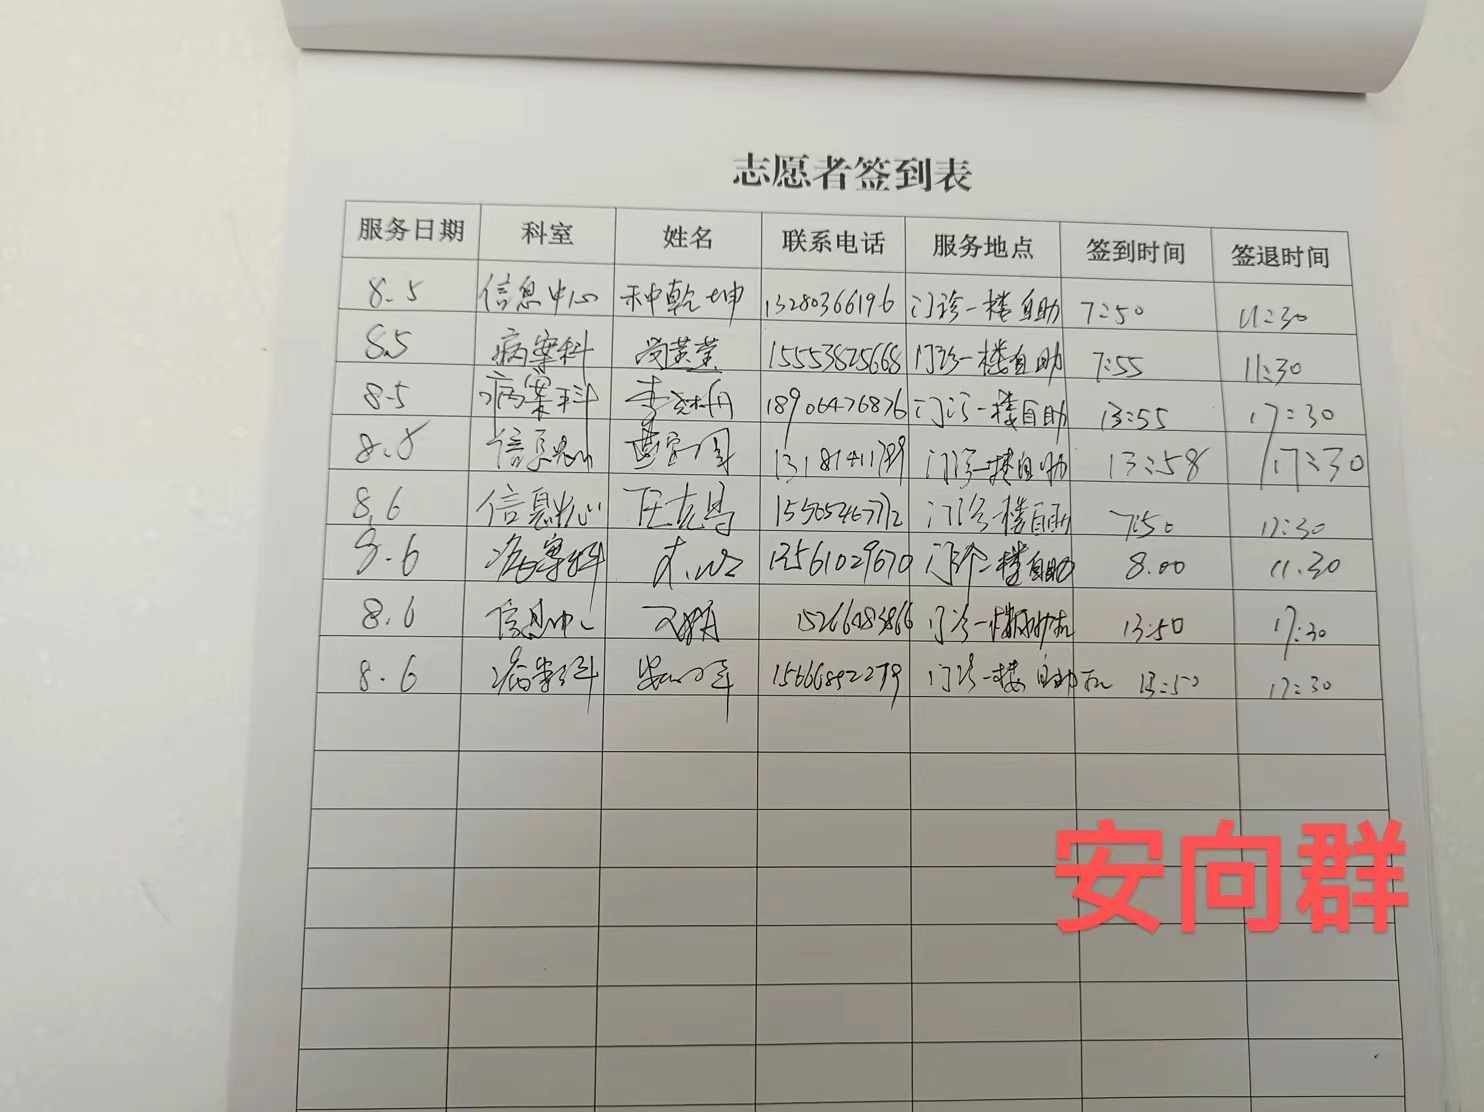 志愿者签到表
服务日期 科室 姓名 联系电话 服务地点 签到时间 签退时间
8.5 信息中心 种乾坤 13280366196 门诊一楼自助 7:50 11:30
8.5 病案科 15553825668 门诊一楼自助 7:55 11:30
8.5 病案科 18906476876 门诊一楼自助 13:55 17:30
8.5 信息中心 门诊一楼自助 13:58 17:30
8.6 信息中心 门诊一楼自助 7:50 11:30
8.6 病案科 13561029670 门诊一楼自助 8.00 11.30
8.6 信息中心 门诊一楼 13:50 17:30
8.6 病案科 15666892279 门诊一楼自助机 13:50 17:30
安向群